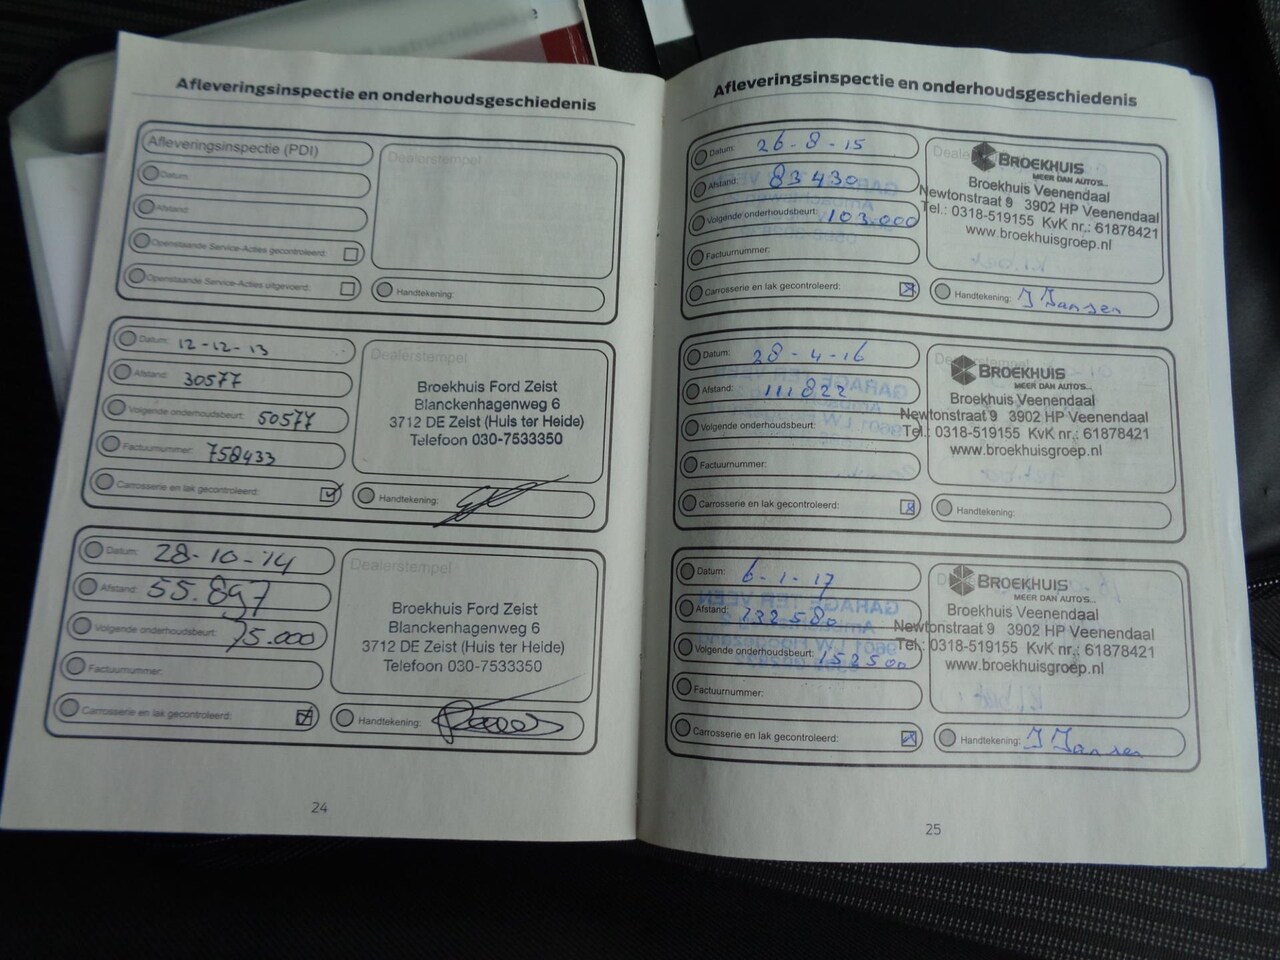 Afleveringsinspectie en onderhoudsgeschiedenis
Afleveringsinspectie (PDI)
Datum:
Afstand:
Openstaande Service-Acties gecontroleerd:
Openstaande Service-Acties uitgevoerd:
Dealerstempel
Handtekening:
Datum: 12-12-13
Afstand: 30577
Volgende onderhoudsbeurt: 50577
Factuurnummer: 758433
Carrosserie en lak gecontroleerd:
Dealerstempel
Broekhuis Ford Zeist
Blanckenhagenweg 6
3712 DE Zeist (Huis ter Heide)
Telefoon 030-7533350
Handtekening:
Datum: 28-10-'14
Afstand: 55.897
Volgende onderhoudsbeurt: 75.000
Factuurnummer:
Carrosserie en lak gecontroleerd:
Dealerstempel
Broekhuis Ford Zeist
Blanckenhagenweg 6
3712 DE Zeist (Huis ter Heide)
Telefoon 030-7533350
Handtekening:
24
Afleveringsinspectie en onderhoudsgeschiedenis
Datum: 26-8-15
Afstand: 83430
Volgende onderhoudsbeurt: 103.000
Factuurnummer:
Carrosserie en lak gecontroleerd:
BROEKHUIS
MEER DAN AUTO'S...
Broekhuis Veenendaal
Newtonstraat 9 3902 HP Veenendaal
Tel.: 0318-519155 KvK nr.: 61878421
www.broekhuisgroep.nl
Handtekening: J Jansen
Datum: 28-4-16
Afstand: 111822
Volgende onderhoudsbeurt:
Factuurnummer:
Carrosserie en lak gecontroleerd:
BROEKHUIS
MEER DAN AUTO'S...
Broekhuis Veenendaal
Newtonstraat 9 3902 HP Veenendaal
Tel.: 0318-519155 KvK nr.: 61878421
www.broekhuisgroep.nl
Handtekening:
Datum: 6-1-17
Afstand: 132580
Volgende onderhoudsbeurt: 152500
Factuurnummer:
Carrosserie en lak gecontroleerd:
BROEKHUIS
MEER DAN AUTO'S...
Broekhuis Veenendaal
Newtonstraat 9 3902 HP Veenendaal
Tel.: 0318-519155 KvK nr.: 61878421
www.broekhuisgroep.nl
Handtekening: J Jansen
25